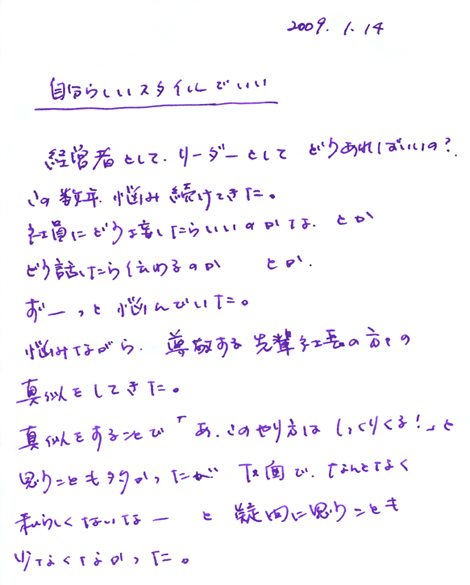 2009. 1. 14
自分らしいスタイルでいい
経営者として、リーダーとして どうあればいいの?
この数年、悩み続けてきた。
社員にどう接したらいいのかな、とか
どう話したら伝わるのか とか、
ずーっと悩んでいた。
悩みながら、尊敬する先輩社長の方々の
真似をしてきた。
真似をすることで「あ、このやり方はしっくりくる!」と
思うことも多かったが 反面で、なんとなく
私らしくないなー と疑問に思うことも
少なくなかった。